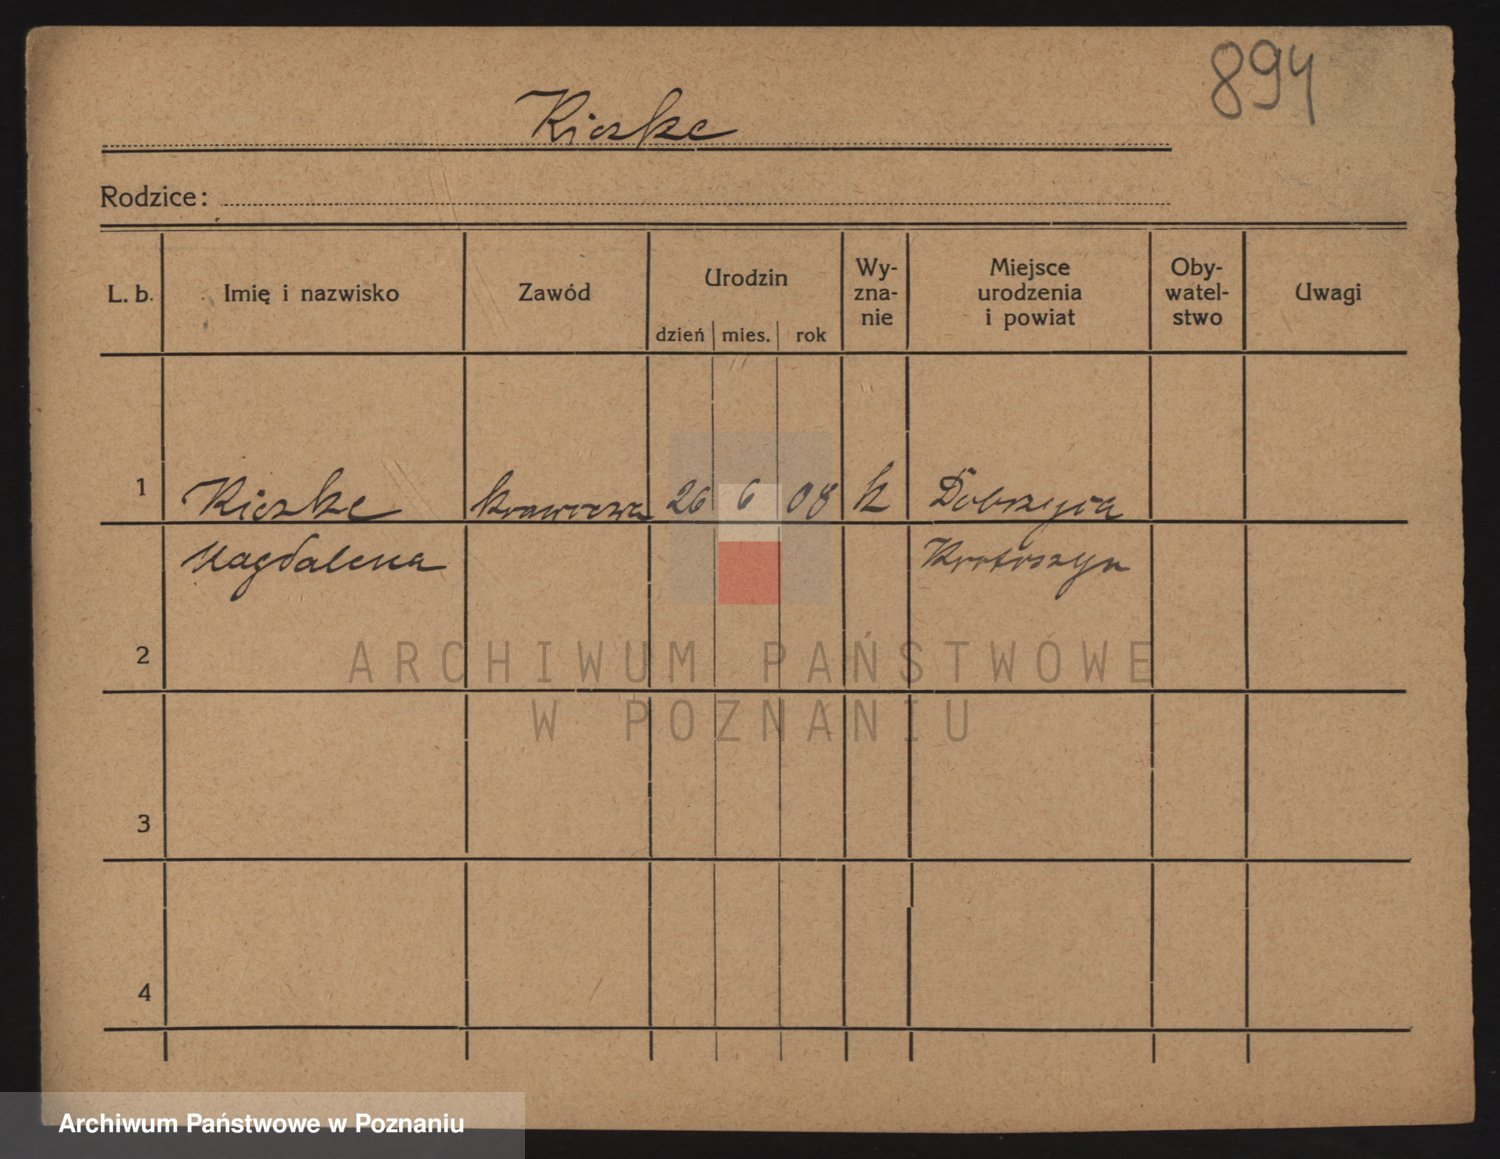 894
Kieske
Rodzice:
L. b. Imię i nazwisko Zawód Urodzin dzień mies. rok Wy-zna-nie Miejsce urodzenia i powiat Oby-watel-stwo Uwagi
1 Kieske krawcowa 26 6 08 k Dobrzyca
Magdalena Krotoszyn
2
3
4
ARCHIWUM PAŃSTWOWE
W POZNANIU
Archiwum Państwowe w Poznaniu